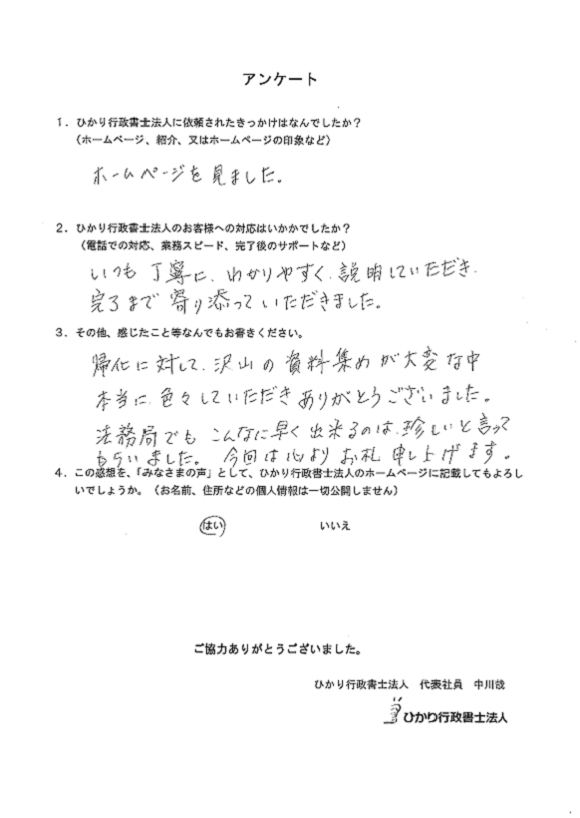 アンケート
1．ひかり行政書士法人に依頼されたきっかけはなんでしたか？
（ホームページ、紹介、又はホームページの印象など）
ホームページを見ました。
2．ひかり行政書士法人のお客様への対応はいかかでしたか？
（電話での対応、業務スピード、完了後のサポートなど）
いつも丁寧に、わかりやすく、説明していただき、
完了まで寄り添っていただきました。
3．その他、感じたこと等なんでもお書きください。
帰化に対して、沢山の資料集めが大変な中
本当に、色々していただきありがとうございました。
法務局でもこんなに早く出来るのは、珍しいと言って
もらいました。今回は心よりお札申し上げます。
4．この感想を、「みなさまの声」として、ひかり行政書士法人のホームページに記載してもよろし
いでしょうか。（お名前、住所などの個人情報は一切公開しません）
はい いいえ
ご協力ありがとうございました。
ひかり行政書士法人 代表社員 中川哉
ひかり行政書士法人